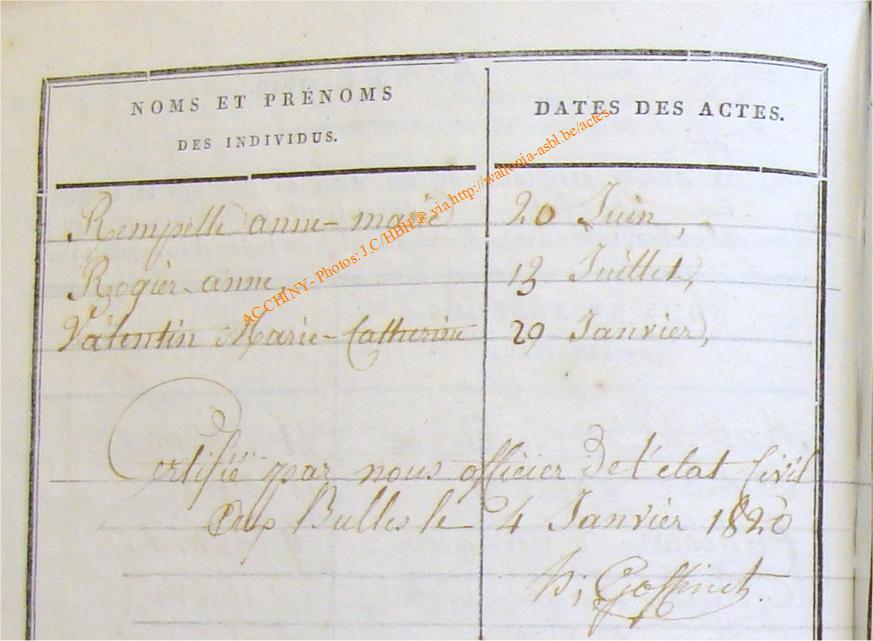 NOMS ET PRÉNOMS
DES INDIVIDUS.
DATES DES ACTES.
Rempelle anne-marie 20 Juin,
Rogier anne, 13 Juillet,
Valentin Marie-Catherine 29 Janvier,
Certifié par nous officier de l'etat Civil
aux Bulles le 4 Janvier 1820
h; Goffinet.
AC CHINY - Photos: J.C/HBH @ via http://wallonia-asbl.be/actes